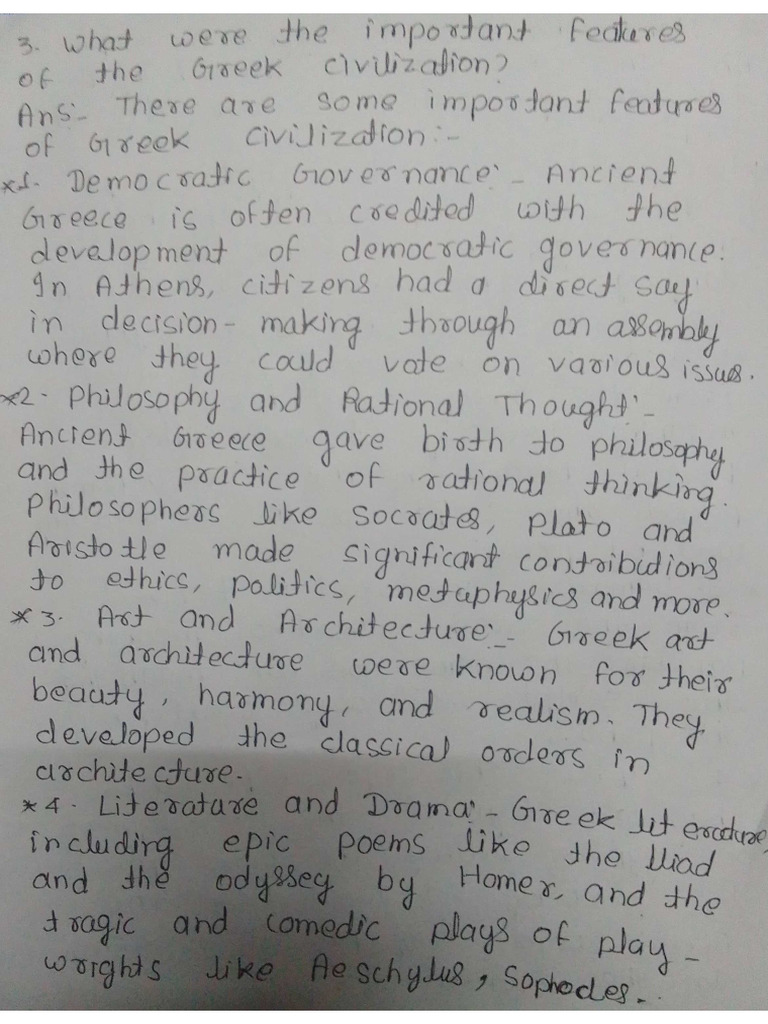 3. What were the important features
of the Greek civilization?
Ans:- There are some important features
of Greek civilization:-
*1. Democratic Governance:- Ancient
Greece is often credited with the
development of democratic governance.
In Athens, citizens had a direct say
in decision-making through an assembly
where they could vote on various issues.
*2. Philosophy and Rational Thought:-
Ancient Greece gave birth to philosophy
and the practice of rational thinking.
Philosophers like Socrates, Plato and
Aristotle made significant contributions
to ethics, politics, metaphysics and more.
*3. Art and Architecture:- Greek art
and architecture were known for their
beauty, harmony, and realism. They
developed the classical orders in
architecture.
*4. Literature and Drama:- Greek literature,
including epic poems like the Iliad
and the odyssey by Homer, and the
tragic and comedic plays of play-
wrights like Aeschylus, Sophocles..